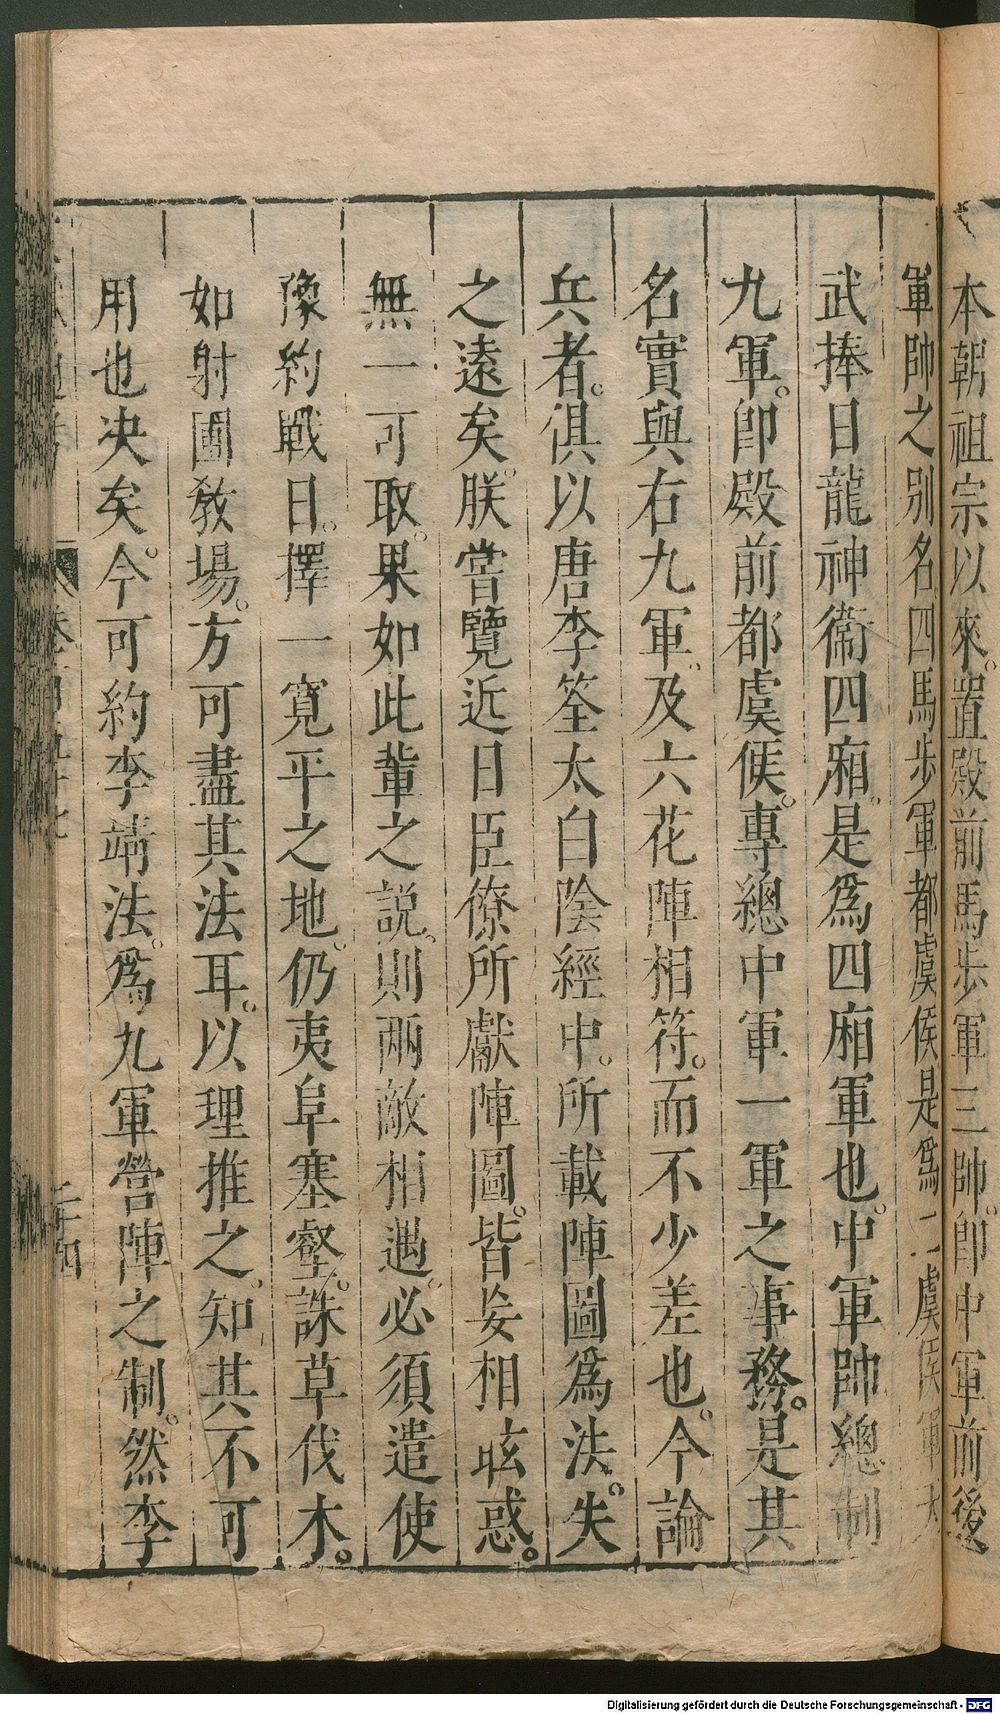 本朝祖宗以來。置殿前馬步軍三帥。卽中軍前後
軍帥之別名四馬步軍都虞候是爲二虞候軍天
武捧日龍神衞四廂。是爲四廂軍也。中軍帥總制
九軍。卽殿前都虞候。專總中軍一軍之事務。是其
名實與右九軍。及六花陣相符。而不少差也。今論
兵者。俱以唐李筌太白陰經中。所載陣圖爲法。失
之遠矣。朕嘗覽近日臣僚所獻陣圖。皆妄相眩惑。
無一可取。果如此輩之説。則兩敵相遇。必須遣使
豫約戰日。擇一寛平之地。仍夷阜塞壑。誅草伐木。
如射圃敎場。方可盡其法耳。以理推之。知其不可
用也决矣。今可約李靖法。爲九軍營陣之制。然李